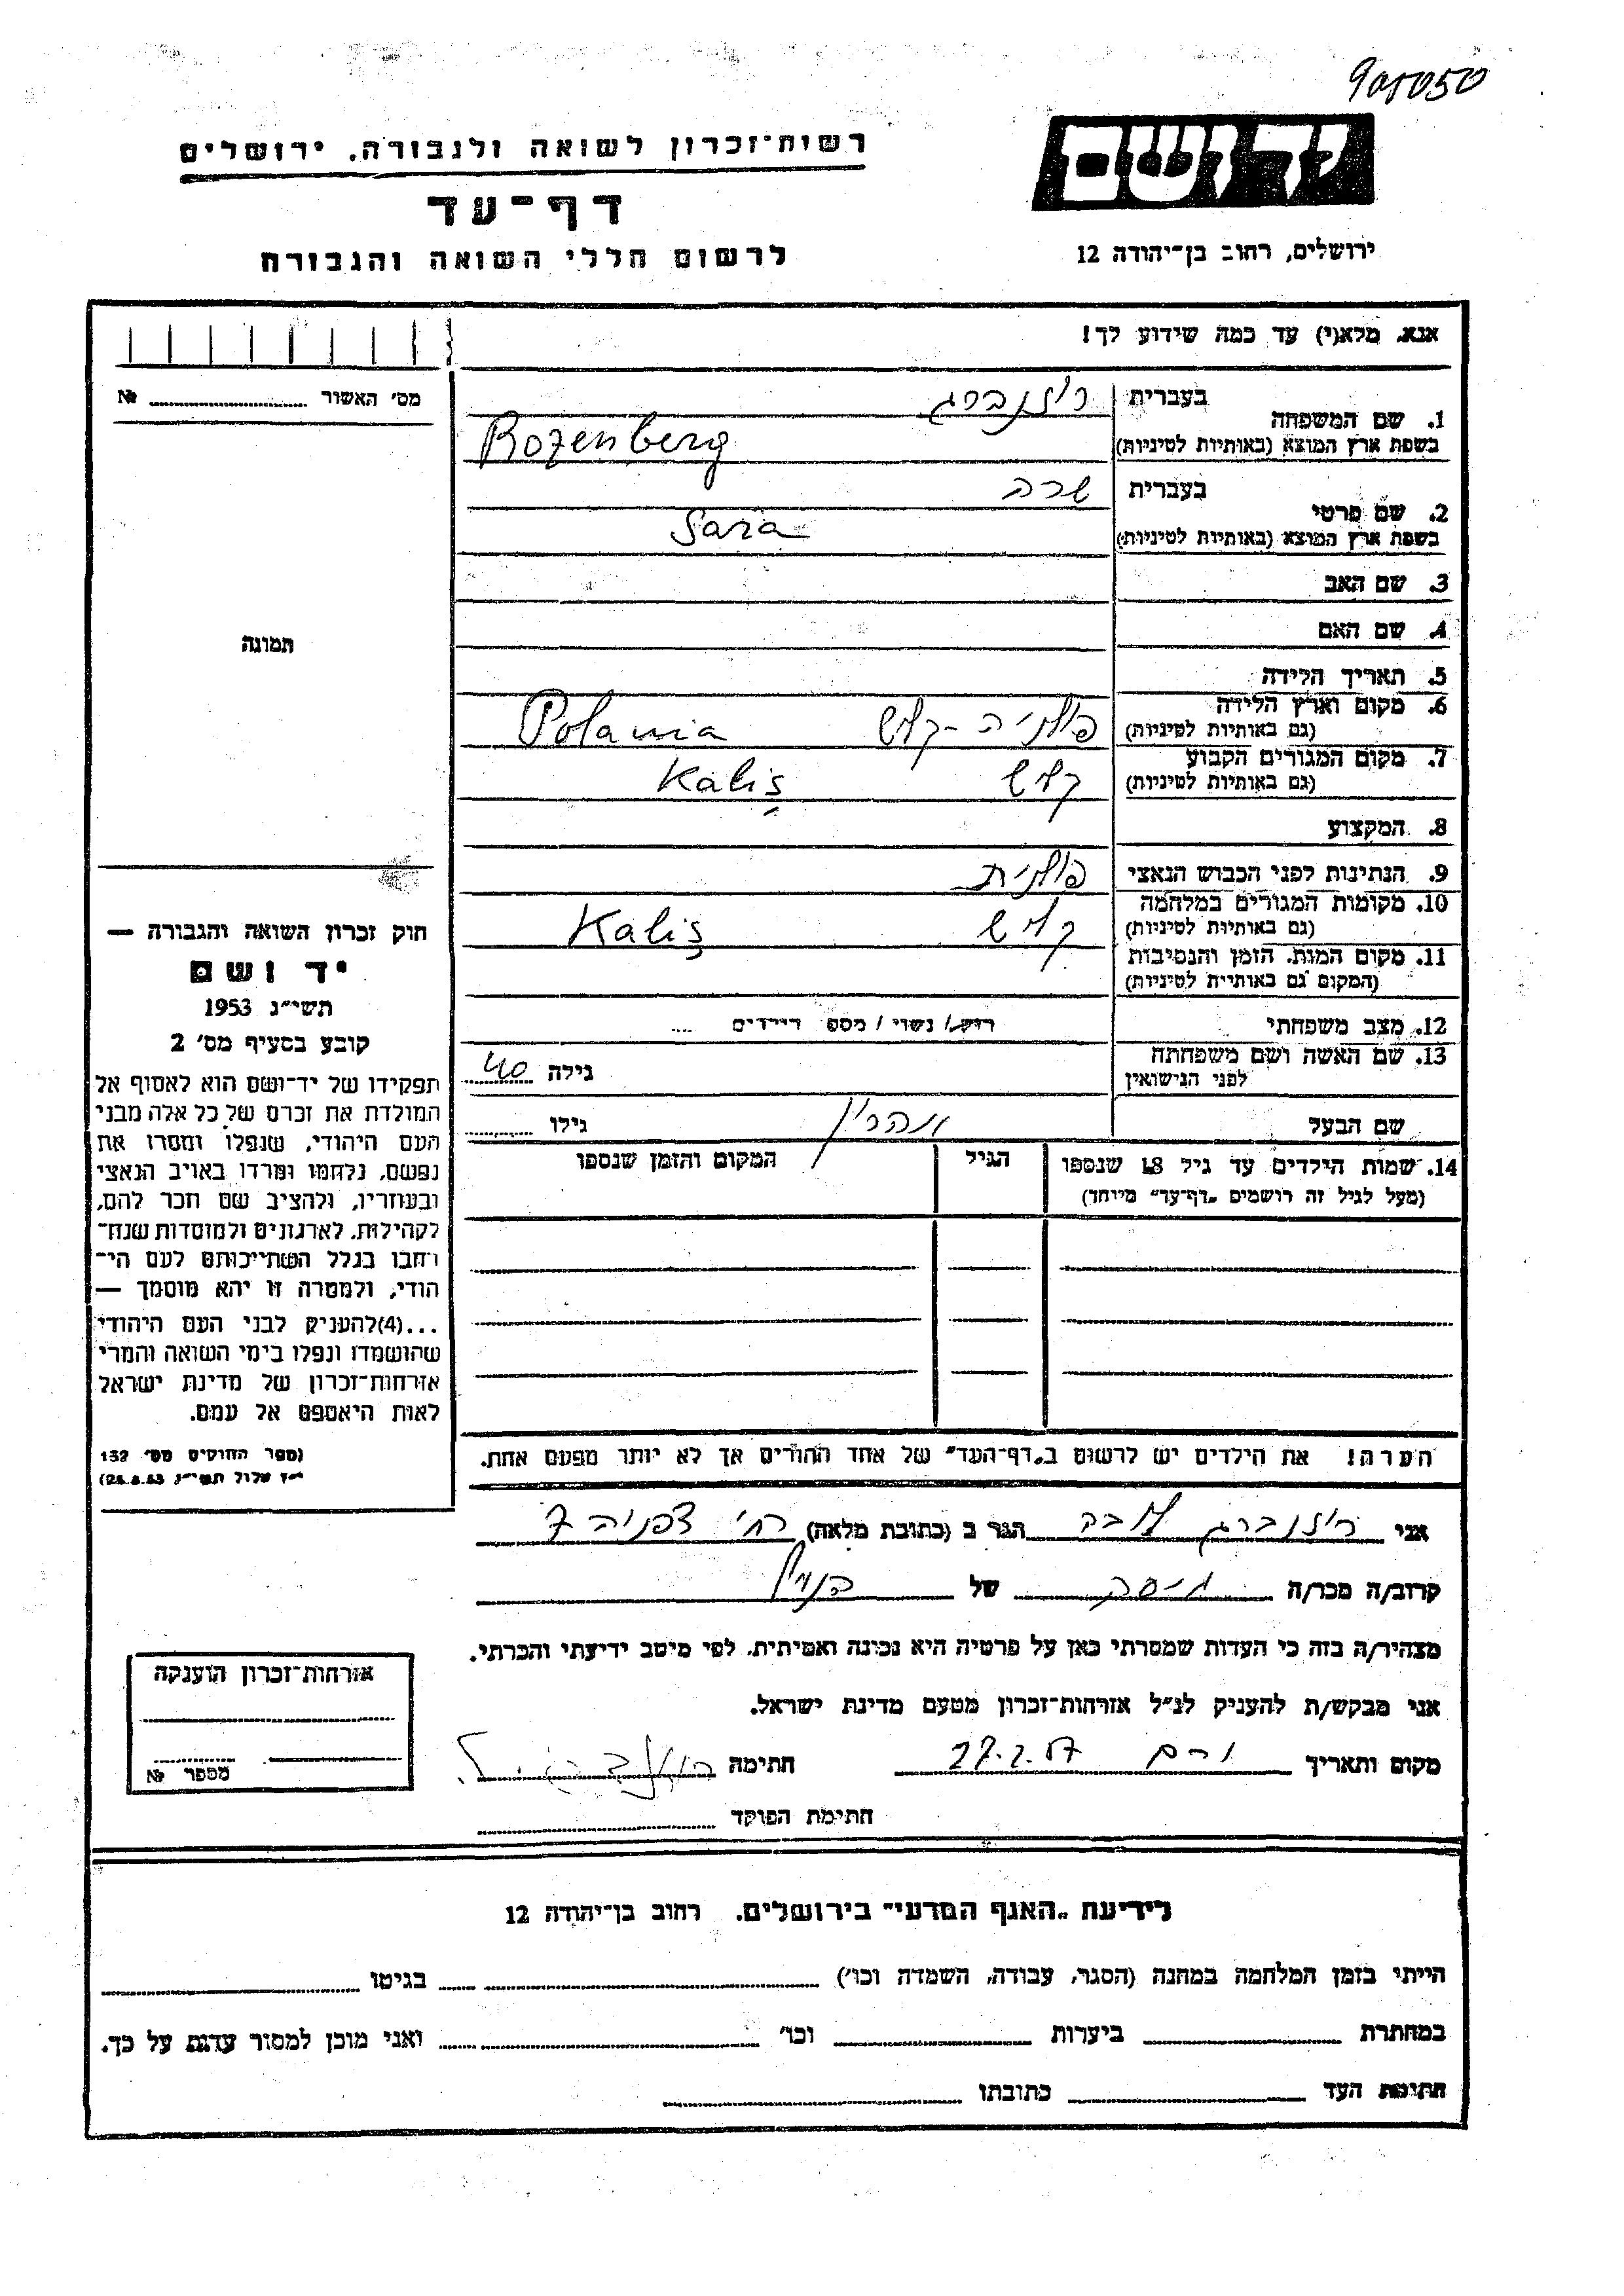 905050
יד ושם
רשות-זכרון לשואה ולגבורה, ירושלים
דף-עד
לרשום חללי השואה והגבורה
ירושלים, רחוב בן-יהודה 12
אנא, מלא(י) עד כמה שידוע לך!
מס׳ האשור № ........
1. שם המשפחה בעברית רוזנברג
בשפת ארץ המוצא (באותיות לטיניות) Rozenberg
2. שם פרטי בעברית שרה
בשפת ארץ המוצא (באותיות לטיניות) Sara
3. שם האב
4. שם האם
תמונה
5. תאריך הלידה
6. מקום וארץ הלידה
(גם באותיות לטיניות) פולניה - קליש Polania
7. מקום המגורים הקבוע
(גם באותיות לטיניות) קליש Kaliş
8. המקצוע
9. הנתינות לפני הכבוש הנאצי פולנית
10. מקומות המגורים במלחמה
(גם באותיות לטיניות) קליש Kaliş
11. מקום המות, הזמן והנסיבות
(המקום גם באותיות לטיניות)
12. מצב משפחתי רוק/ נשוי / מספ הילדים ....
13. שם האשה ושם משפחתה
לפני הנישואין גילה 40
שם הבעל אהרון גילו ........
14. שמות הילדים עד גיל 18 שנספו הגיל המקום והזמן שנספו
(מעל לגיל זה רושמים „דף-עד״ מיוחד)
חוק זכרון השואה והגבורה —
יד ושם
תשי״ג 1953
קובע בסעיף מס׳ 2
תפקידו של יד-ושם הוא לאסוף אל
המולדת את זכרם של כל אלה מבני
העם היהודי, שנפלו ומסרו את
נפשם, נלחמו ומרדו באויב הנאצי
ובעוזריו, ולהציב שם וזכר להם,
לקהילות, לארגונים ולמוסדות שנח-
רבו בגלל השתייכותם לעם הי-
הודי, ולמטרה זו יהא מוסמך —
...(4)להעניק לבני העם היהודי
שהושמדו ונפלו בימי השואה והמרי
אזרחות-זכרון של מדינת ישראל
לאות היאספם אל עמם.
(ספר החוקים מס׳ 132
י״ז אלול תשי״ג 28.8.53)
הערה! את הילדים יש לרשום ב„דף-העד״ של אחד ההורים אך לא יותר מפעם אחת.
אני רוזנברג לובה הגר ב (כתובת מלאה) רח׳ צפניה 7
קרוב/ה מכר/ה גיסה של הנ״ל
מצהיר/ה בזה כי העדות שמסרתי כאן על פרטיה היא נכונה ואמיתית, לפי מיטב ידיעתי והכרתי.
אני מבקש/ת להעניק לנ״ל אזרחות-זכרון מטעם מדינת ישראל.
מקום ותאריך 27.2.57 חתימה
חתימת הפוקד
אזרחות-זכרון הוענקה
מספר №
לידיעת „האגף המדעי״ בירושלים. רחוב בן-יהודה 12
הייתי בזמן המלחמה במחנה (הסגר, עבודה, השמדה וכו׳) ........ בגיטו ........
במחתרת ........ ביערות ........ וכו׳ ........ ואני מוכן למסור עדות על כך.
חתימת העד ........ כתובתו ........